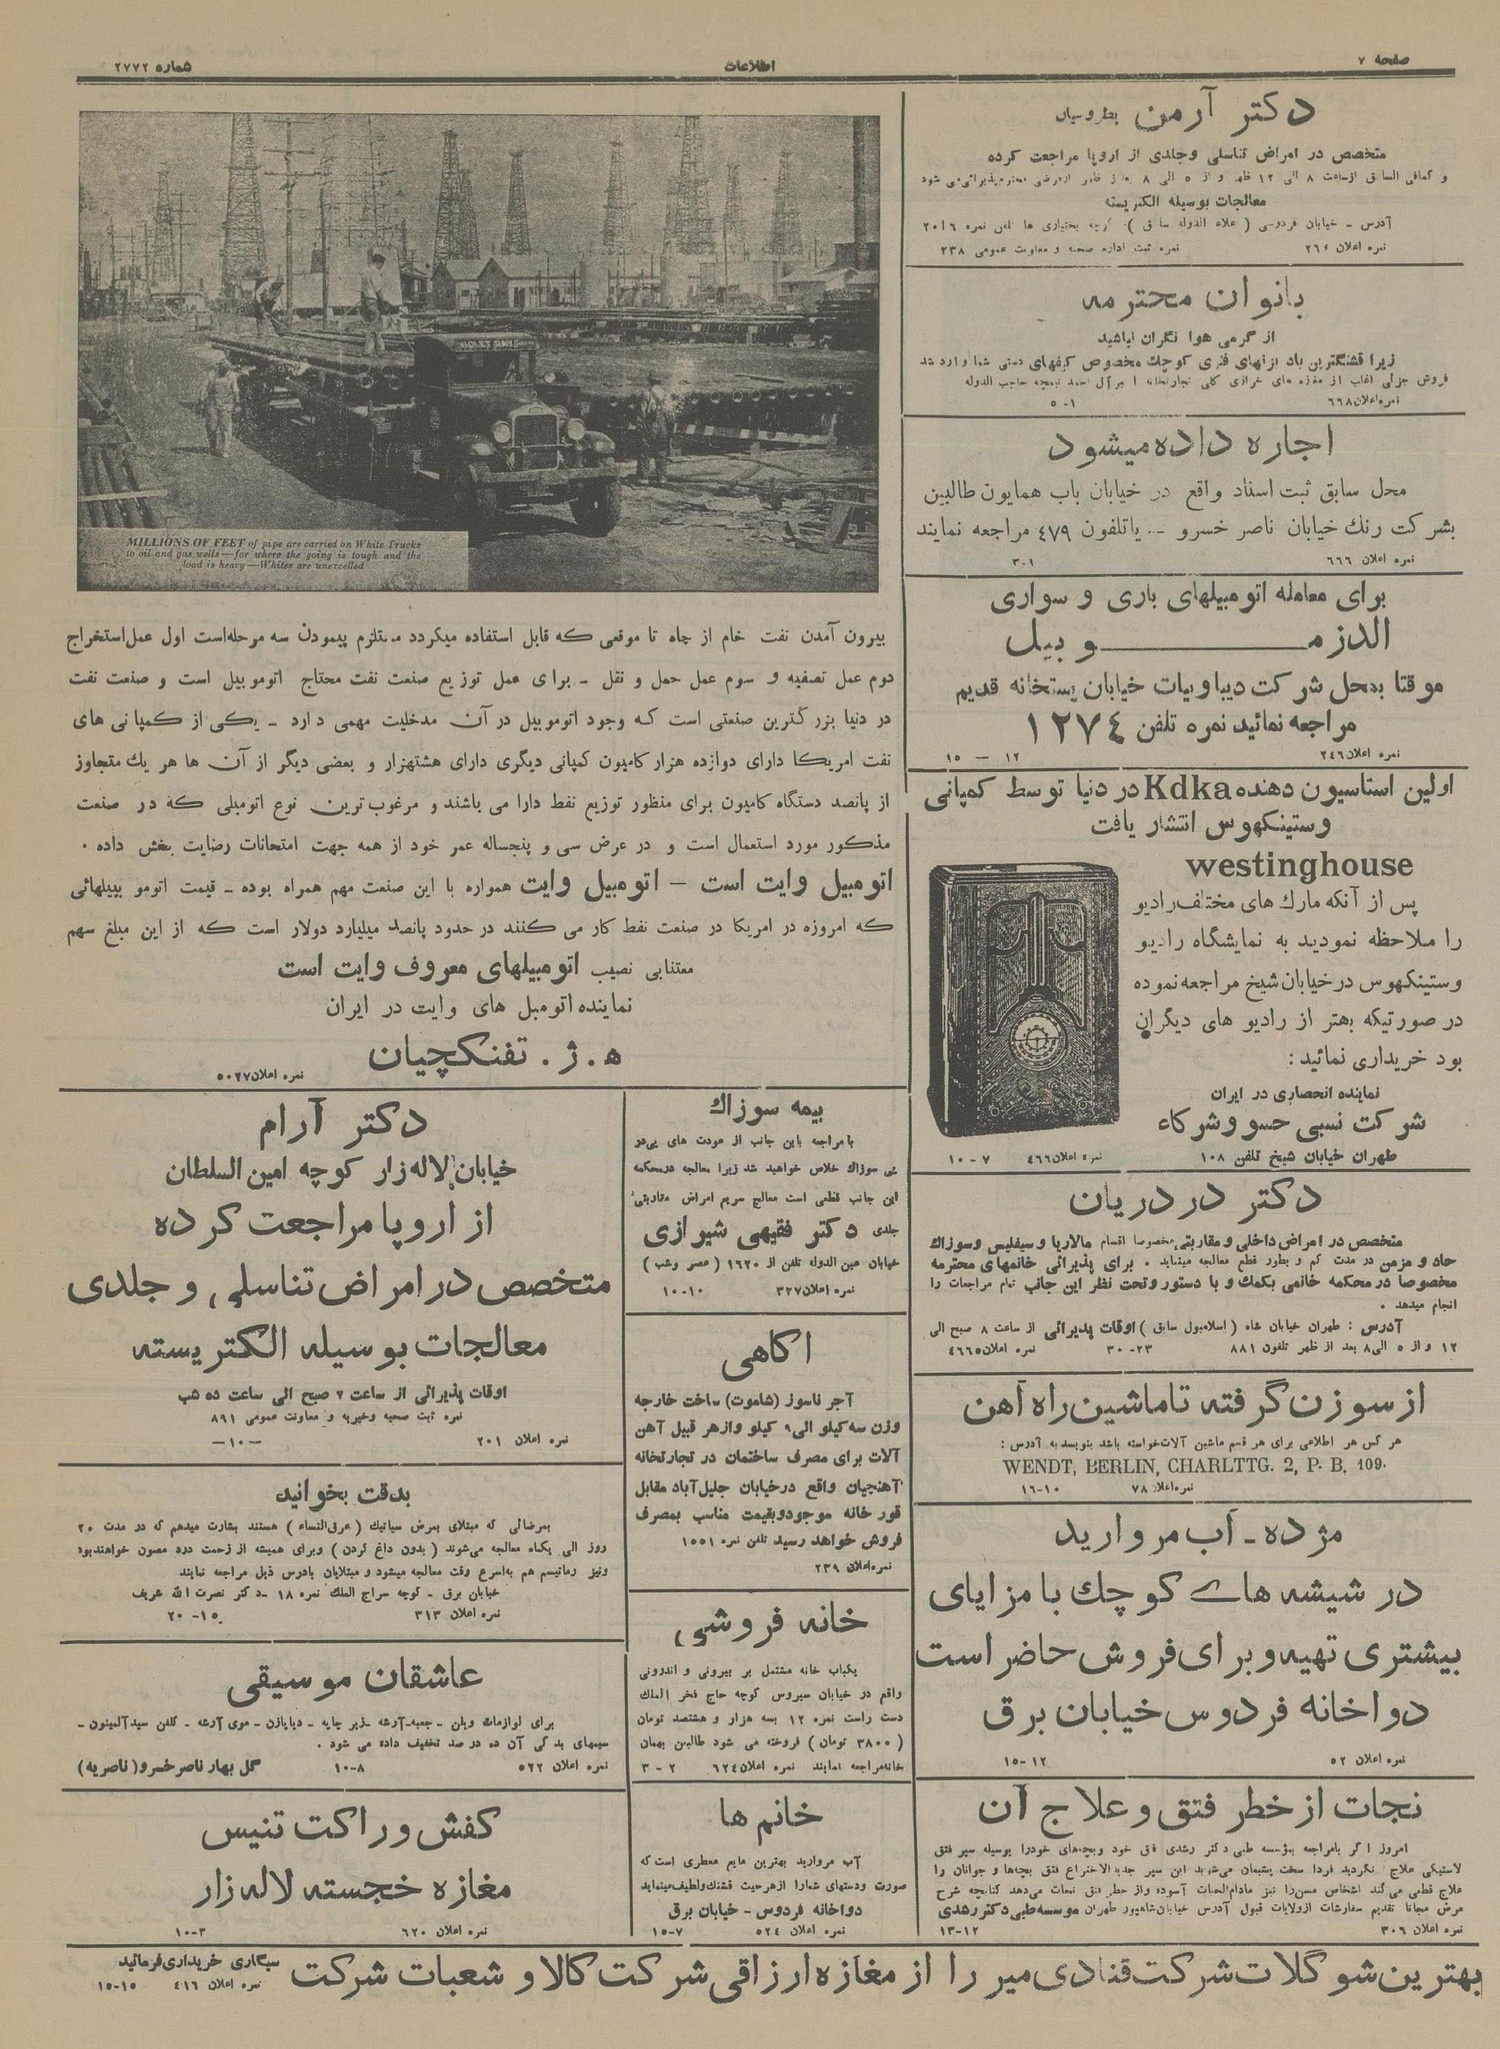 صفحه ۷
اطلاعات
شماره ۲۷۷۲
دکتر آرمن پطروسیان
متخصص در امراض تناسلی وجلدی از اروپا مراجعت کرده
و کمافی السابق ازساعت ۸ الی ۱۲ ظهر و از ۵ الی ۸ بعد از ظهر ازمرضی محترم پذیرائی می شود
معالجات بوسیله الکتریسته
آدرس ـ خیابان فردوسی ( علاء الدوله سابق ) کوچه بختیاری ها تلفن نمره ۲۰۱۶
نمره اعلان ۲۶۰ نمره ثبت اداره صحیه و معاونت عمومی ۲۳۸
بانوان محترمه
از گرمی هوا نگران نباشید
زیرا قشنگترین باد بزنهای فنری کوچک مخصوص کیفهای دستی شما وارد شد
فروش جزئی اغلب از مغازه های خرازی کلی تجارتخانه
نمره اعلان ۶۶۸ ۱-۵
اجاره داده میشود
محل سابق ثبت اسناد واقع در خیابان باب همایون طالبین
بشرکت رنک خیابان ناصر خسرو ـ یاتلفون ٤٧٩ مراجعه نمایند
نمره اعلان ۶۶۶ ۱-۳
برای معامله اتومبیلهای باری و سواری
الدزمـــــــوبیل
موقتا بمحل شرکت دیباوبیات خیابان پستخانه قدیم
مراجعه نمائید نمره تلفن ۱۲۷٤
نمره اعلان ۲٤۶ ۱۲ — ۱۵
اولین استاسیون دهنده Kdka در دنیا توسط کمپانی
وستینکهوس انتشار یافت
westinghouse
پس از آنکه مارک های مختلف رادیو
را ملاحظه نمودید به نمایشگاه رادیو
وستینکهوس در خیابان شیخ مراجعه نموده
در صورتیکه بهتر از رادیو های دیگران
بود خریداری نمائید :
نماینده انحصاری در ایران
شرکت نسبی حسو و شرکاء
طهران خیابان شیخ تلفن ۱۰۸
نمره اعلان ٤۶۶ ۷ - ۱۰
دکتر دردریان
متخصص در امراض داخلی و مقاربتی مخصوصا اقسام مالاریا و سیفلیس و سوزاک
حاد و مزمن در مدت کم و بطور قطع معالجه مینماید . برای پذیرائی خانمهای محترمه
مخصوصا در محکمه خانمی بکمک و با دستور و تحت نظر این جانب تمام مراجعات را
انجام میدهد .
آدرس : طهران خیابان شاه ( اسلامبول سابق ) اوقات پذیرائی از ساعت ۸ صبح الی
۱۲ و از ۵ الی ۸ بعد از ظهر تلفون ۸۸۱ ۲۳-۳۰ نمره اعلان ٤۶۶۵
از سوزن گرفته تا ماشین راه آهن
هر کس هر اطلاعی برای هر قسم ماشین آلات خواسته باشد بنویسد به آدرس :
WENDT, BERLIN, CHARLTTG. 2, P. B. 109.
نمره اعلان ۷۸ ۱۰-۱۶
مژده ـ آب مروارید
در شیشه های کوچک با مزایای
بیشتری تهیه و برای فروش حاضر است
دواخانه فردوس خیابان برق
نمره اعلان ۵۲ ۱۲-۱۵
نجات از خطر فتق و علاج آن
امروز اگر بامراجعه بمؤسسه طبی دکتر رشدی فتق خود وبچه‌های خودرا بوسیله سپر فتق
لاستیکی علاج نکردید فردا سخت پشیمان می‌شوید این سپر جدیدالاختراع فتق بچه‌ها و جوانان را
علاج قطعی می‌کند اشخاص مسن‌را نیز مادام‌الحیات آسوده و از خطر فتق نجات می‌دهد کتابچه شرح
مرض مجانا تقدیم سفارشات ازولایات قبول آدرس خیابان شاهپور طهران موسسه طبی دکتر رشدی
نمره اعلان ۳۰۶ ۱۲-۱۳
MILLIONS OF FEET of pipe are carried on White Trucks
to oil and gas wells—for where the going is tough and the
load is heavy—Whites are unexcelled
بیرون آمدن نفت خام از چاه تا موقعی که قابل استفاده میگردد مستلزم پیمودن سه مرحله است اول عمل استخراج
دوم عمل تصفیه و سوم عمل حمل و نقل ـ برای عمل توزیع صنعت نفت محتاج اتوموبیل است و صنعت نفت
در دنیا بزرگترین صنعتی است که وجود اتوموبیل در آن مدخلیت مهمی دارد ـ یکی از کمپانی های
نفت امریکا دارای دوازده هزار کامیون کمپانی دیگری دارای هشتهزار و بعضی دیگر از آن ها هر یک متجاوز
از پانصد دستگاه کامیون برای منظور توزیع نفط دارا می باشند و مرغوب ترین نوع اتومبلی که در صنعت
مذکور مورد استعمال است و در عرض سی و پنجساله عمر خود از همه جهت امتحانات رضایت بخش داده .
اتومبیل وایت است — اتومبیل وایت همواره با این صنعت مهم همراه بوده ـ قیمت اتومو بیبلهائی
که امروزه در امریکا در صنعت نفط کار می کنند در حدود پانصد میلیارد دولار است که از این مبلغ سهم
معتنابی نصیب اتومبیلهای معروف وایت است
نماینده اتومبل های وایت در ایران
ه . ژ . تفنکچیان
نمره اعلان ۵۰۲۷
بیمه سوزاک
با مراجعه باین جانب از عودت های پی‌در
پی سوزاک خلاص خواهید شد زیرا معالجه درمحکمه
این جانب قطعی است معالج سریع امراض مقاربتی
جلدی دکتر فقیهی شیرازی
خیابان عین الدوله تلفن از ۱۶۲۰ ( عصر وشب )
نمره اعلان ۳۲۷ ۱۰-۱۰
آکاهی
آجر ناسوز (شاموت) ساخت خارجه
وزن سه کیلو الی ۹ کیلو وازهر قبیل آهن
آلات برای مصرف ساختمان در تجارتخانه
آهنچیان واقع درخیابان جلیل‌آباد مقابل
قورخانه موجود و بقیمت مناسب بمصرف
فروش خواهد رسید تلفن نمره ۱۵۵۱
نمره اعلان ۲۳۹
خانه فروشی
یکباب خانه مشتمل بر بیرونی و اندرونی
واقع در خیابان سیروس کوچه حاج فخر الملک
دست راست نمره ۱۲ بسه هزار و هشتصد تومان
( ۳۸۰۰ تومان ) فروخته می شود طالبین بهمان
خانه مراجعه نمایند نمره اعلان ۶۲٤ ۲ - ۳
خانم ها
آب مروارید بهترین مایع معطری است که
صورت ودستهای شمارا ازهرحیث قشنک ولطیف مینماید
دواخانه فردوس - خیابان برق
نمره اعلان ۵۲٤ ۷-۱۵
دکتر آرام
خیابان لاله زار کوچه امین السلطان
از اروپا مراجعت کرده
متخصص در امراض تناسلی و جلدی
معالجات بوسیله الکتریسته
اوقات پذیرائی از ساعت ۷ صبح الی ساعت ده شب
نمره ثبت صحیه وخیریه و معاونت عمومی ۸۹۱
نمره اعلان ۲۰۱ —۱۰—
بدقت بخوانید
بمرضائی که مبتلای بمرض سیاتیک ( عرق‌النساء ) هستند بشارت میدهم که در مدت ۲۰
روز الی یکماه معالجه می‌شوند ( بدون داغ کردن ) وبرای همیشه از زحمت درد مصون خواهندبود
ونیز رماتیسم هم به‌اسرع وقت معالجه میشود و مبتلایان بادرس ذیل مراجعه نمایند
خیابان برق - کوچه سراج الملک نمره ۱۸ ـ دکتر نصرت الله شریف
نمره اعلان ۳۱۳ ۱۵- ۲۰
عاشقان موسیقی
برای لوازمات ویلن ـ جعبه‌ـ آرشه ـ زیر چانه ـ دیاپازن ـ موی آرشه ـ کلفن سیدآلمینون ـ
سیمهای یدکی آن ده در صد تخفیف داده می شود .
نمره اعلان ۵۲۲ ۸-۱۰ گل بهار ناصرخسرو (ناصریه)
کفش و راکت تنیس
مغازه خجسته لاله زار
نمره اعلان ۶۲۰ ۳-۱۰
بهترین شوگلات شرکت قنادی میر را از مغازه ارزاقی شرکت کالا و شعبات شرکت سیگاری خریداری فرمائید
نمره اعلان ٤۱۶ ۱۵-۱۵